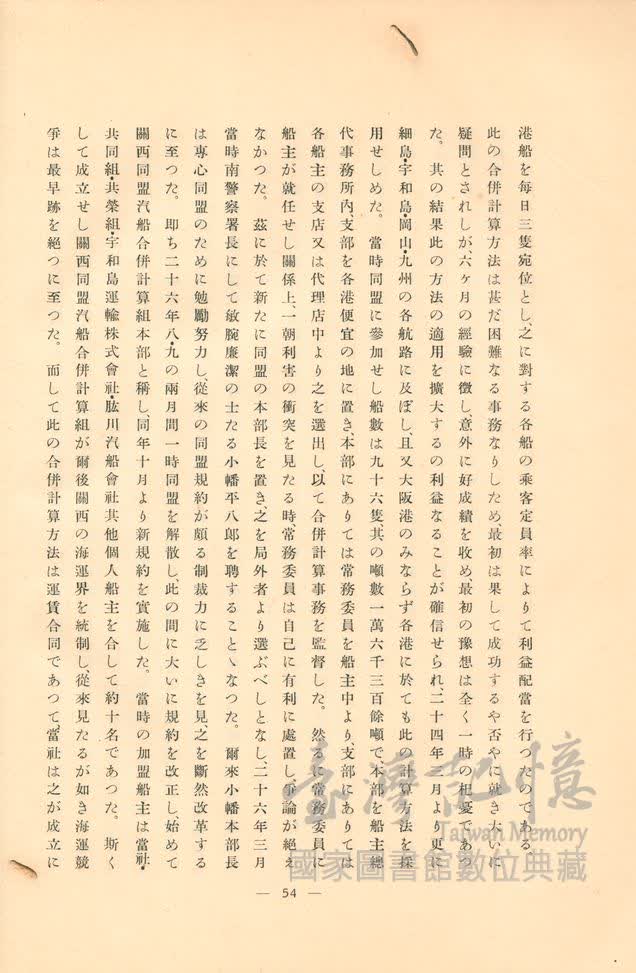 港船を每日三隻宛位とし、之に對する各船の乘客定員率によりて利益配當を行つたのである。
此の合併計算方法は甚だ困難なる事務なりしため、最初は果して成功するや否やに就き大いに
疑問とされしが、六ケ月の經驗に徵し、意外に好成績を收め、最初の豫想は全く一時の杞憂であつ
た。其の結果此の方法の適用を擴大するの利益なることが確信せられ、二十四年三月より更に
細島・宇和島・岡山・九州の各航路に及ぼし、且又大阪港のみならず各港に於ても此の計算方法を採
用せしめた。當時同盟に參加せし船數は九十六隻、其の噸數一萬六千三百餘噸で、本部を船主總
代事務所內、支部を各港便宜の地に置き、本部にありては常務委員を船主中より、支部にありては
各船主の支店又は代理店中より之を選出し、以て合併計算事務を監督した。然るに常務委員に
船主が就任せし關係上、一朝利害の衝突を見たる時、常務委員は自己に有利に處置し、爭論が絕え
なかつた。茲に於て新たに同盟の本部長を置き、之を局外者より選ぶべしとなし、二十六年三月
當時南警察署長にして敏腕廉潔の士たる小幡平八郞を聘することゝなつた。爾來小幡本部長
は專心同盟のために勉勵努力し、從來の同盟規約が頗る制裁力に乏しきを見之を斷然改革する
に至つた。卽ち二十六年八・九の兩月間一時同盟を解散し、此の間に大いに規約を改正し、始めて
關西同盟汽船合併計算組本部と稱し、同年十月より新規約を實施した。當時の加盟船主は當社・
共同組・共榮組・宇和島運輸株式會社・肱川汽船會社其他個人船主を合して約十名であつた。斯く
して成立せし關西同盟汽船合併計算組が爾後關西の海運界を統制し、從來見たるが如き海運競
爭は最早跡を絕つに至つた。而して此の合併計算方法は運賃合同であつて、當社は之が成立に
— 54 —
臺灣記憶
Taiwan Memory
國家圖書館數位典藏